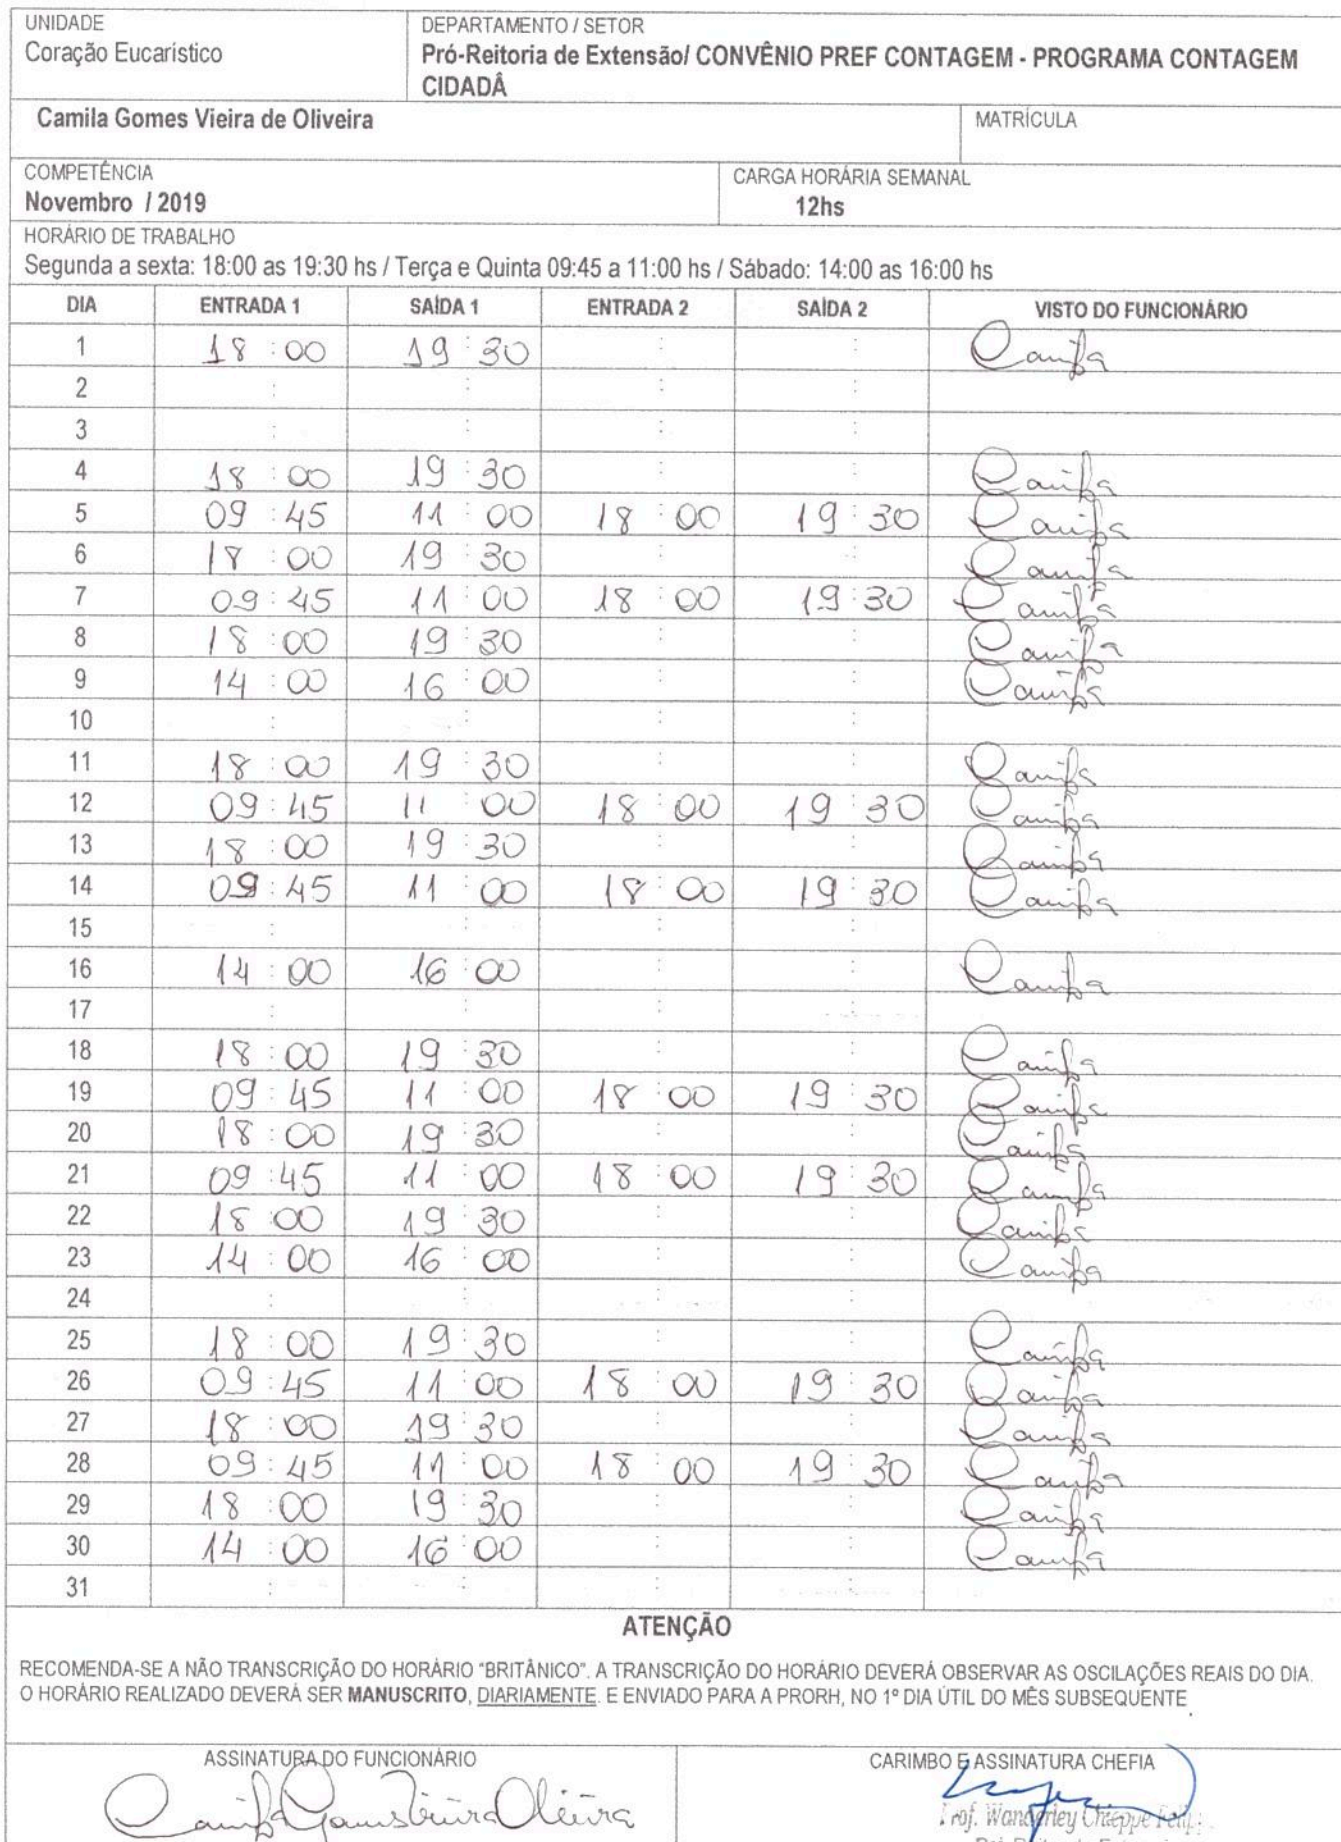 UNIDADE
Coração Eucarístico
DEPARTAMENTO / SETOR
Pró-Reitoria de Extensão/ CONVÊNIO PREF CONTAGEM - PROGRAMA CONTAGEM
CIDADÂ
Camila Gomes Vieira de Oliveira
MATRÍCULA
COMPETÊNCIA
Novembro / 2019
CARGA HORÁRIA SEMANAL
12hs
HORÁRIO DE TRABALHO
Segunda a sexta: 18:00 as 19:30 hs / Terça e Quinta 09:45 a 11:00 hs / Sábado: 14:00 as 16:00 hs
DIA ENTRADA 1 SAÍDA 1 ENTRADA 2 SAÍDA 2 VISTO DO FUNCIONÁRIO
1 18:00 19:30 : : Camila
2 : : : :
3 : : : :
4 18:00 19:30 : : Camila
5 09:45 11:00 18:00 19:30 Camila
6 18:00 19:30 : : Camila
7 09:45 11:00 18:00 19:30 Camila
8 18:00 19:30 : : Camila
9 14:00 16:00 : : Camila
10 : : : :
11 18:00 19:30 : : Camila
12 09:45 11:00 18:00 19:30 Camila
13 18:00 19:30 : : Camila
14 09:45 11:00 18:00 19:30 Camila
15 : : : :
16 14:00 16:00 : : Camila
17 : : : :
18 18:00 19:30 : : Camila
19 09:45 11:00 18:00 19:30 Camila
20 18:00 19:30 : : Camila
21 09:45 11:00 18:00 19:30 Camila
22 18:00 19:30 : : Camila
23 14:00 16:00 : : Camila
24 : : : :
25 18:00 19:30 : : Camila
26 09:45 11:00 18:00 19:30 Camila
27 18:00 19:30 : : Camila
28 09:45 11:00 18:00 19:30 Camila
29 18:00 19:30 : : Camila
30 14:00 16:00 : : Camila
31 : : : :
ATENÇÃO
RECOMENDA-SE A NÃO TRANSCRIÇÃO DO HORÁRIO "BRITÂNICO". A TRANSCRIÇÃO DO HORÁRIO DEVERÁ OBSERVAR AS OSCILAÇÕES REAIS DO DIA.
O HORÁRIO REALIZADO DEVERÁ SER MANUSCRITO, DIARIAMENTE. E ENVIADO PARA A PRORH, NO 1º DIA ÚTIL DO MÊS SUBSEQUENTE
ASSINATURA DO FUNCIONÁRIO
Camila Gomes Vieira Oliveira
CARIMBO E ASSINATURA CHEFIA
Prof. Wanderley Chieppe